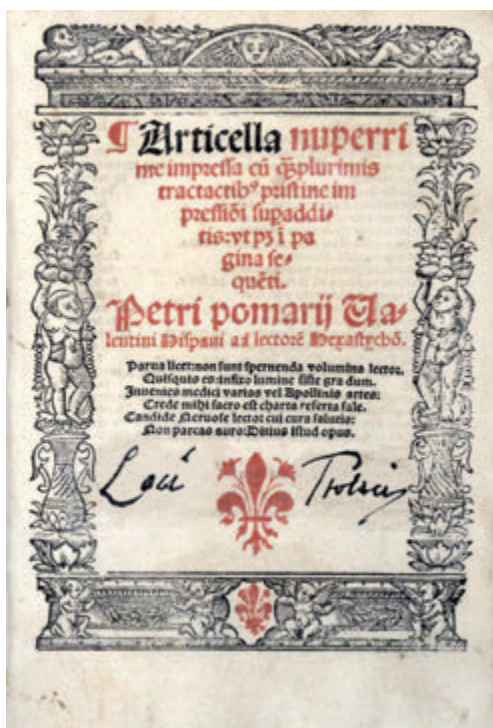 ¶ Articella nuperri
me impressa cū q̄ȝplurimis
tractactib⁹ pristine im
pressiōi supaddi-
tis:vt pȝ ī pa
gina se-
quēti.
Petri pomarij Ua-
lentini Hispani ad lectorē Hexastychō.
Parua licet:non sunt spernenda volumina lector.
Quisquis es:infixo lumine siste gra dum.
Inuenies medici varias vel Apollinis artes:
Crede mihi sacro est charta referta sale.
Candide lector cui cura salutis:
Non parcas auro:Ditius istud opus.